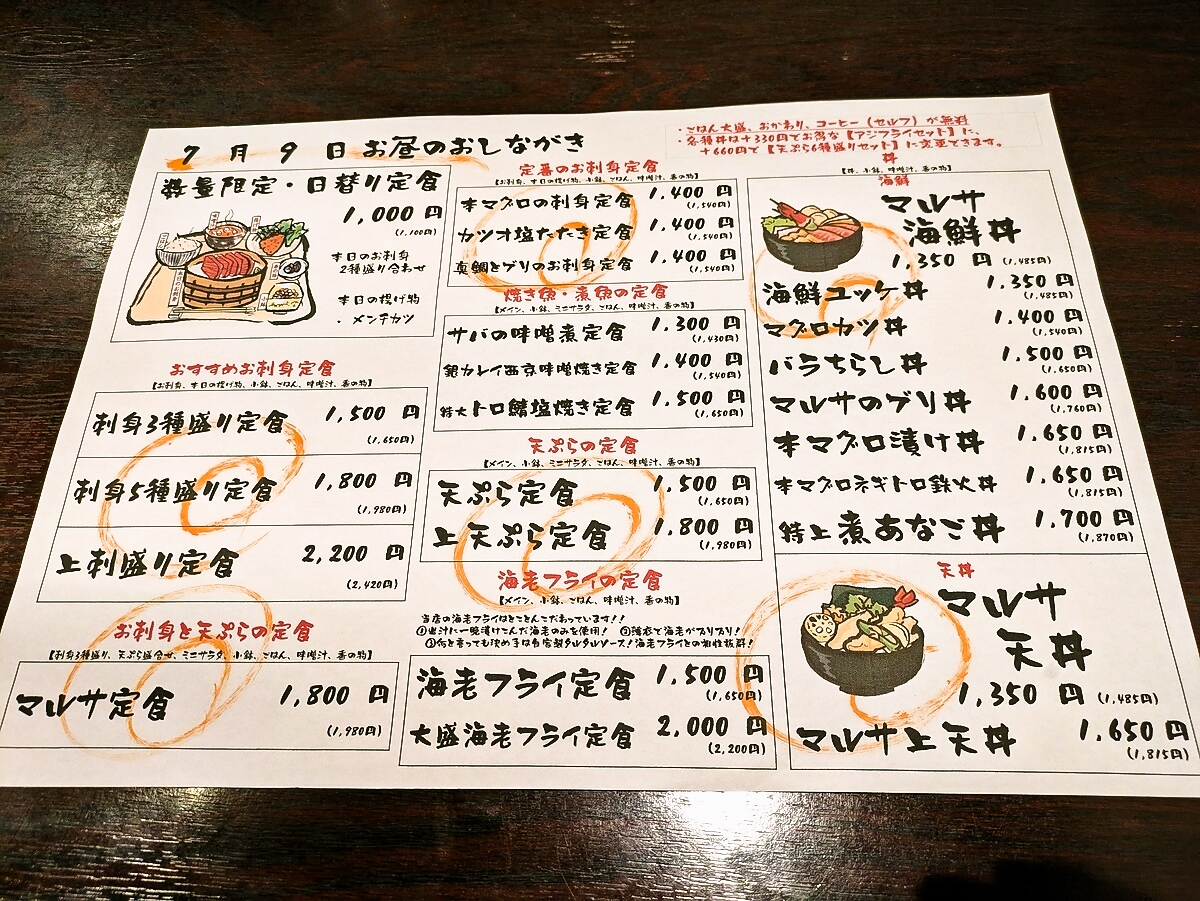 7月9日お昼のおしながき
・ごはん大盛、おかわり、コーヒー(セルフ)が無料
・各種丼は+330円でお得な【アジフライセット】に、
+660円で【天ぷら6種盛りセット】に変更できます。
数量限定・日替り定食
1,000円
(1,100円)
本日のお刺身
2種盛り合わせ
本日の揚げ物
・メンチカツ
おすすめお刺身定食
【お刺身、本日の揚げ物、小鉢、ごはん、味噌汁、香の物】
刺身3種盛り定食 1,500円
(1,650円)
刺身5種盛り定食 1,800円
(1,980円)
上刺盛り定食 2,200円
(2,420円)
お刺身と天ぷらの定食
【刺身3種盛り、天ぷら盛合せ、ミニサラダ、小鉢、ごはん、味噌汁、香の物】
マルサ定食 1,800円
(1,980円)
定番のお刺身定食
【お刺身、本日の揚げ物、小鉢、ごはん、味噌汁、香の物】
本マグロの刺身定食 1,400円
(1,540円)
カツオ塩たたき定食 1,400円
(1,540円)
真鯛とブリのお刺身定食 1,400円
(1,540円)
焼き魚・煮魚の定食
【メイン、小鉢、ミニサラダ、ごはん、味噌汁、香の物】
サバの味噌煮定食 1,300円
(1,430円)
銀カレイ西京味噌焼き定食 1,400円
(1,540円)
特大トロ鯖塩焼き定食 1,500円
(1,650円)
天ぷらの定食
【メイン、小鉢、ミニサラダ、ごはん、味噌汁、香の物】
天ぷら定食 1,500円
(1,650円)
上天ぷら定食 1,800円
(1,980円)
海老フライの定食
【メイン、小鉢、ごはん、味噌汁、香の物】
当店の海老フライはとことんこだわっています!!
①出汁に一晩漬けこんだ海老のみを使用! ②薄衣で海老がプリプリ!
③何と言っても決め手は自家製タルタルソース!海老フライとの相性抜群!
海老フライ定食 1,500円
(1,650円)
大盛海老フライ定食 2,000円
(2,200円)
丼
【丼、小鉢、味噌汁、香の物】
海鮮
マルサ
海鮮丼
1,350円 (1,485円)
海鮮ユッケ丼 1,350円
(1,485円)
マグロカツ丼 1,400円
(1,540円)
バラちらし丼 1,500円
(1,650円)
マルサのブリ丼 1,600円
(1,760円)
本マグロ漬け丼 1,650円
(1,815円)
本マグロネギトロ鉄火丼 1,650円
(1,815円)
特上煮あなご丼 1,700円
(1,870円)
天丼
マルサ
天丼
1,350円 (1,485円)
マルサ上天丼 1,650円
(1,815円)